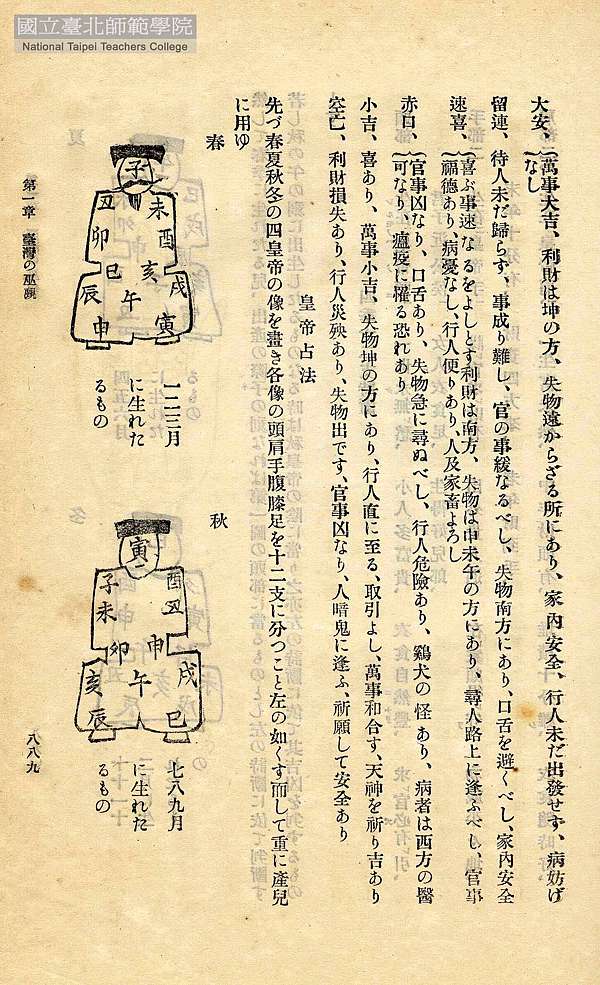 國立臺北師範學院
National Taipei Teachers College
大安、萬事大吉、利財は坤の方、失物遠からざる所にあり、家內安全、行人未だ出發せず、病妨げ
なし
留連、待人未だ歸らず、事成り難し、官の事緩なるべし、失物南方にあり、口舌を避くべし、家內安全
速喜、喜ぶ事速なるをよしとす利財は南方、失物は申未午の方にあり、尋人路上に逢ふべし、官事
福德あり、病憂なし、行人便りあり、人及家畜よろし
赤口、官事凶なり、口舌あり、失物急に尋ぬべし、行人危險あり、鷄犬の怪あり、病者は西方の醫
可なり、瘟疫に罹る恐れあり
小吉、喜あり、萬事小吉、失物坤の方にあり、行人直に至る、取引よし、萬事和合す、天神を祈り吉あり
空亡、利財損失あり、行人災殃あり、失物出です、官事凶なり、人暗鬼に逢ふ、祈願して安全あり
皇帝占法
先づ春夏秋冬の四皇帝の像を畫き各像の頭肩手腹膝足を十二支に分つこと左の如くす而して重に產兒
に用ゆ
春
子
未酉亥戌寅
丑卯巳午辰申
一二三月
に生れた
るもの
秋
寅
酉丑申戌巳
子未卯午亥辰
七八九月
に生れた
るもの
第一章 臺灣の巫覡
八八九